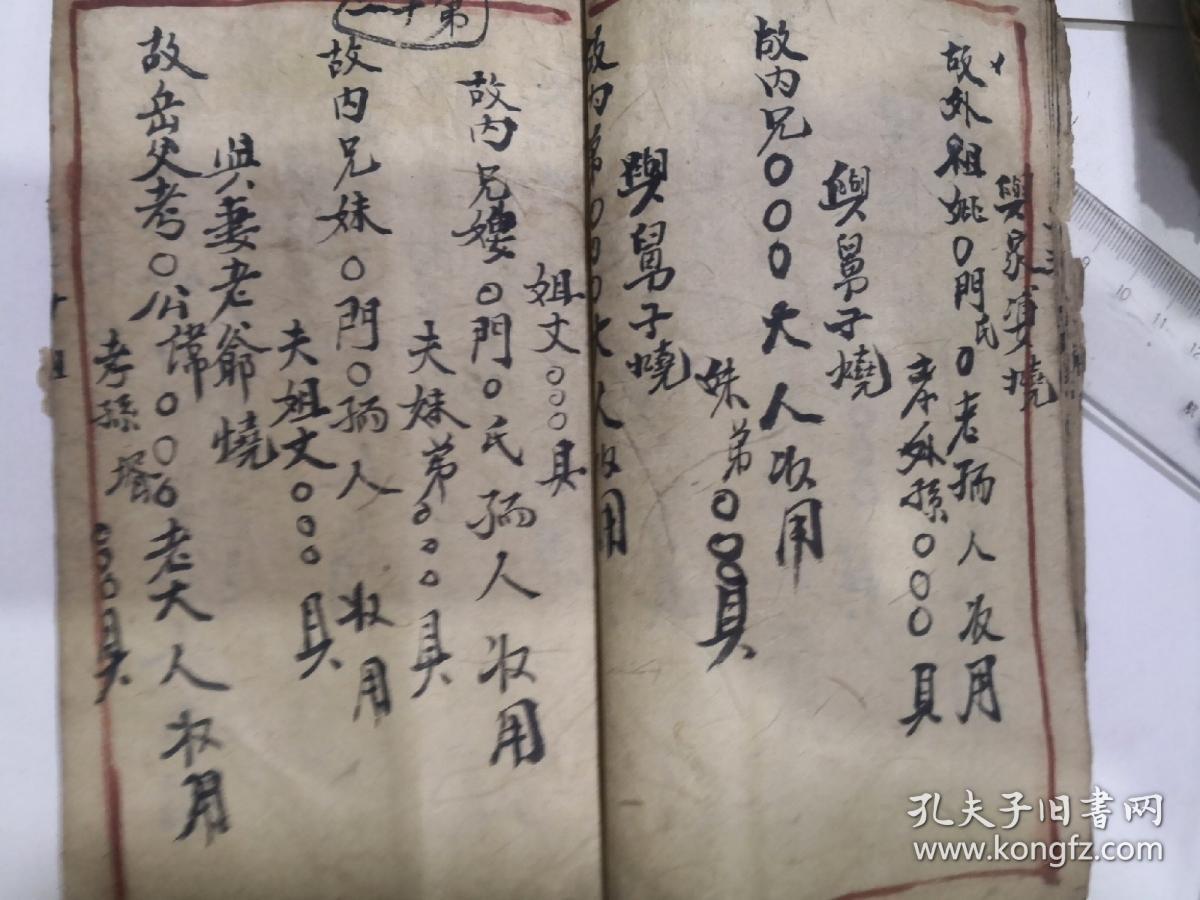 故外祖妣〇門氏〇老孺人收用
奉外孫〇〇〇具
與舅子燒
故内兄〇〇〇大人收用
妹弟〇〇〇具
與舅子燒
故内弟〇〇〇大人收用
姐丈〇〇〇具
第十一
故内兄嫂〇門〇氏孺人收用
夫妹弟〇〇〇具
故内兄妹〇門〇孺人收用
夫姐丈〇〇〇具
與妻老爺燒
故岳父考〇公諱〇〇〇老大人收用
孝孫壻〇〇〇具
孔夫子旧书网
www.kongfz.com